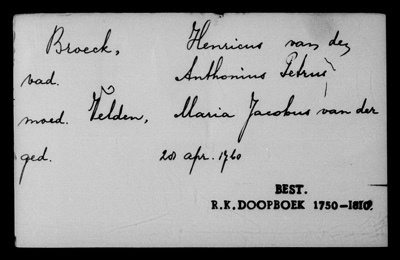 Broeck, Henricus van den
vad. Anthonius Petrus
moed. Velden, Maria Jacobus van der
ged. 20 apr. 1760
BEST.
R.K. DOOPBOEK 1750-1810.